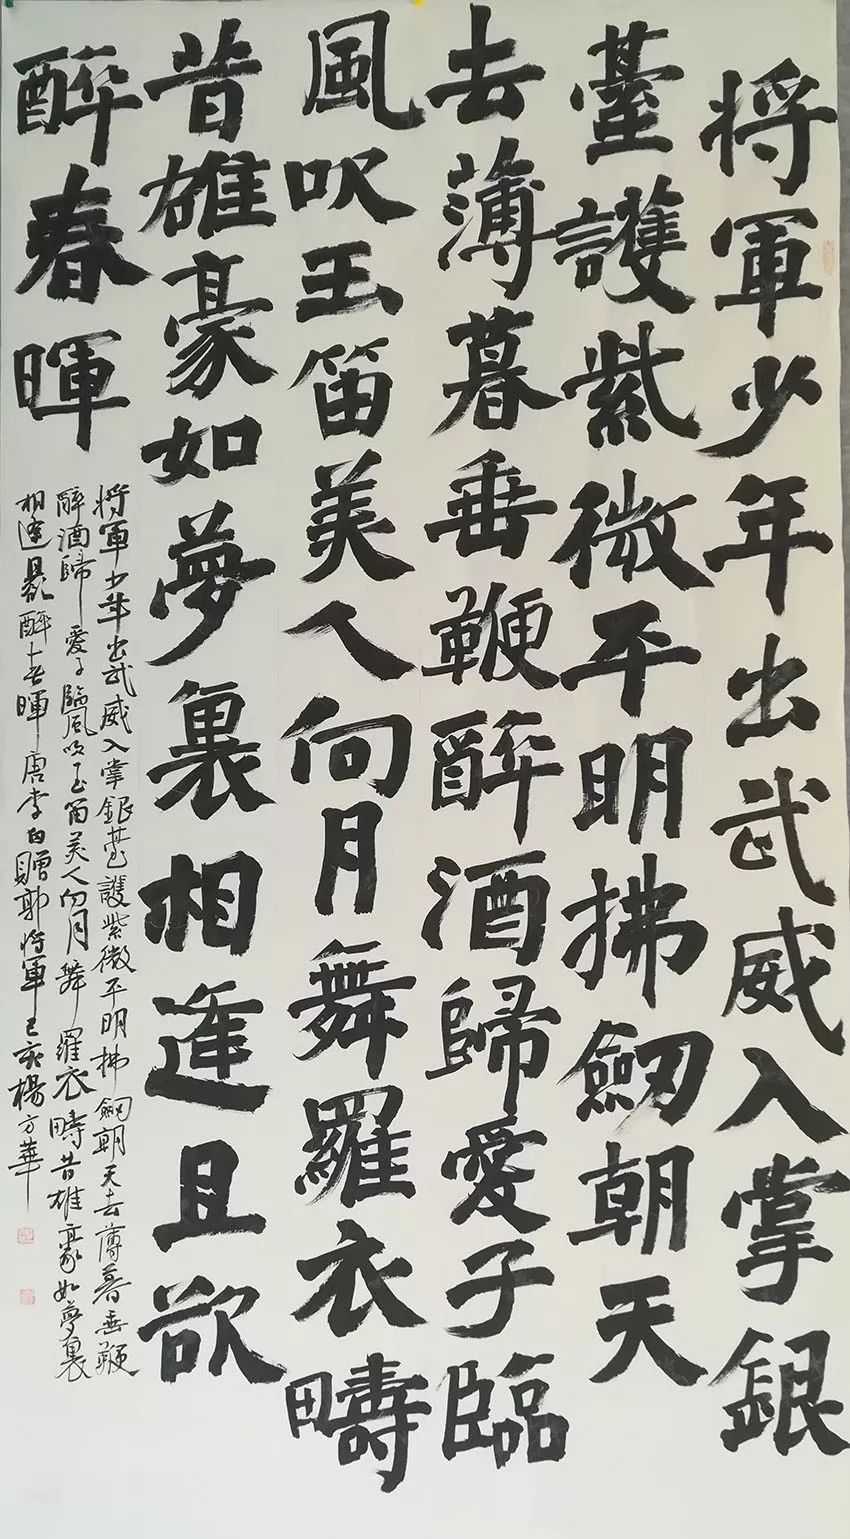 將軍少年出武威入掌銀
臺護紫微平明拂劒朝天
去薄暮垂鞭醉酒歸愛子臨
風吹玉笛美人向月舞羅衣疇
昔雄豪如夢裏相逢且欲
醉春暉
將軍少年出武威入掌銀臺護紫微平明拂劒朝天去薄暮垂鞭
醉酒歸愛子臨風吹玉笛美人向月舞羅衣疇昔雄豪如夢裏
相逢且欲醉春暉唐李白贈郭將軍己亥楊方華